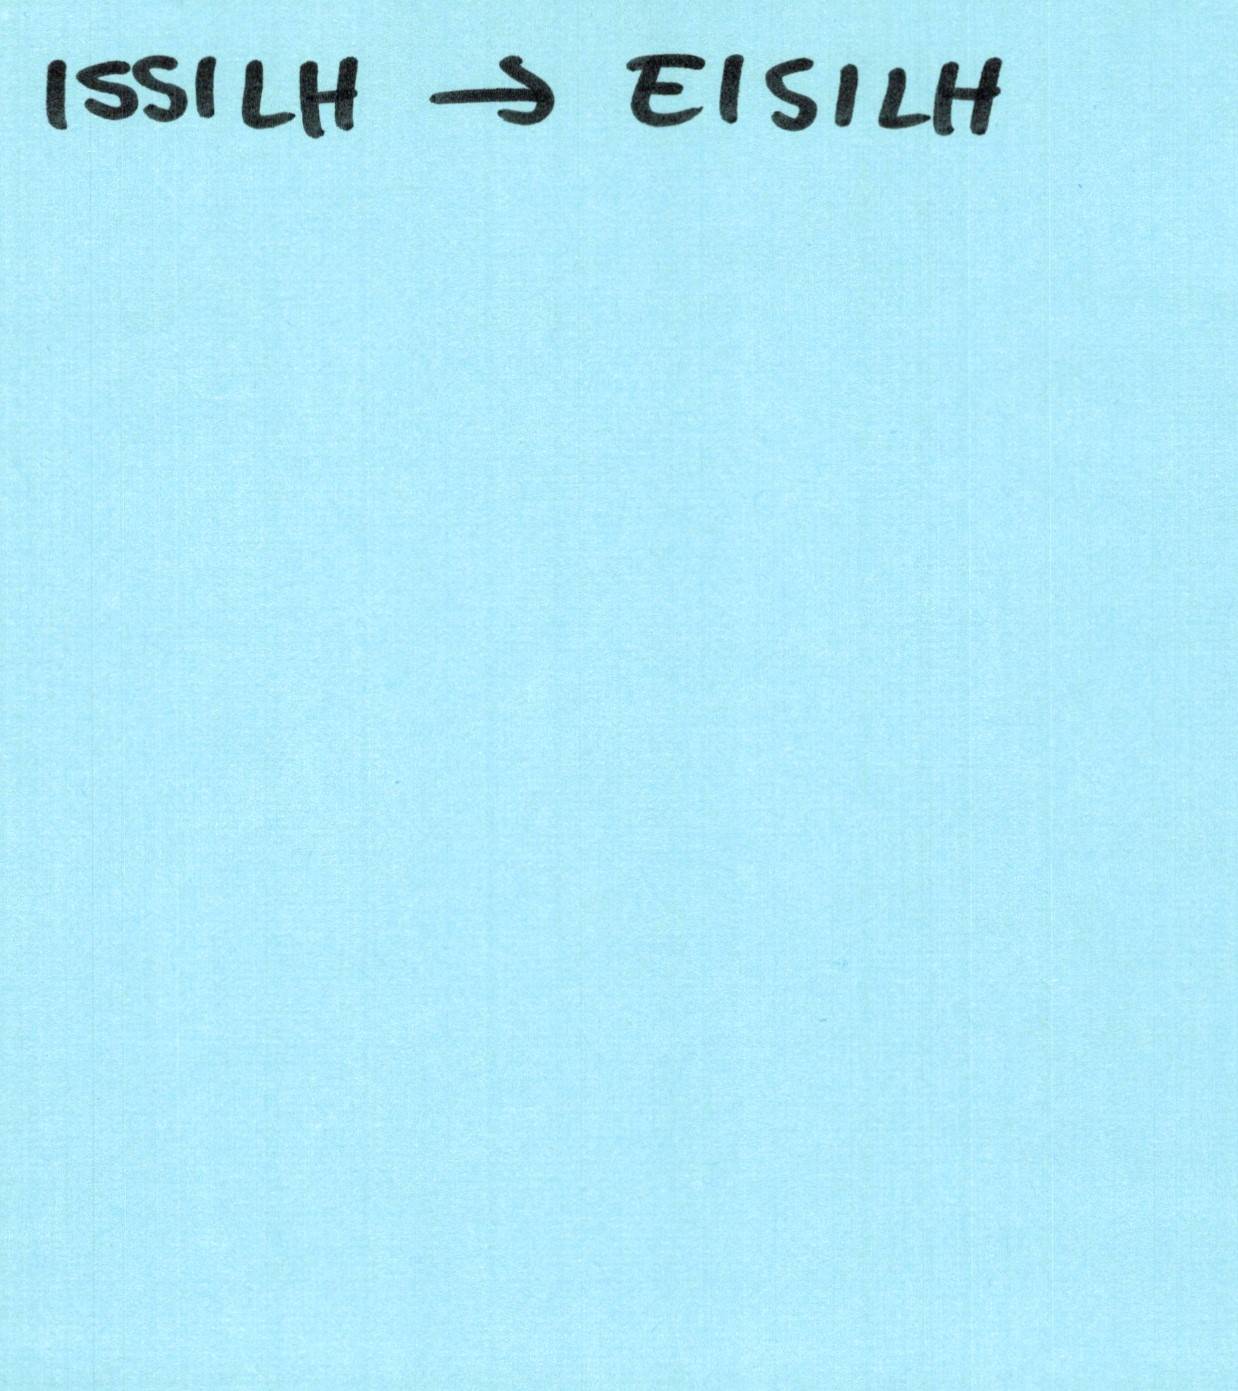 ISSILH → EISILH